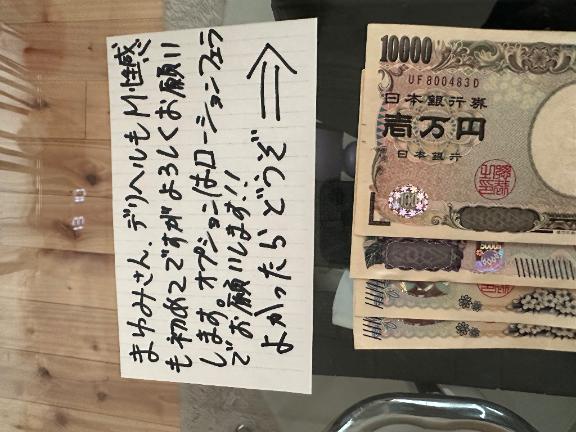 まゆみさん、デリヘルもM性感
も初めてですがよろしくお願い
します。オプションはローションフェラ
でお願いします!!
よかったらどうぞ⇒
10000
UF800483D
日本銀行券
壱万円
日本銀行